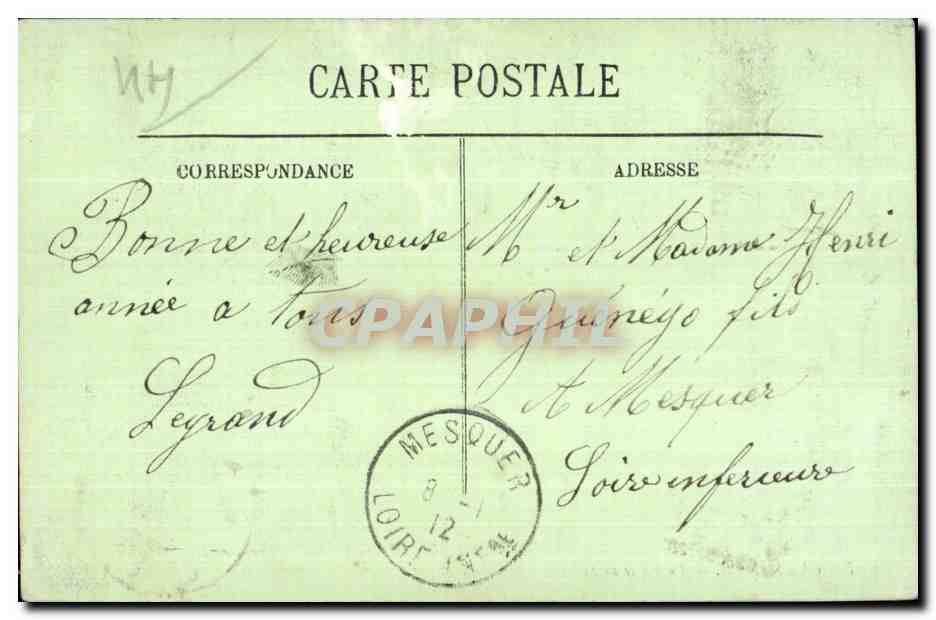 CARTE POSTALE
CORRESPONDANCE
Bonne et heureuse
année a tous
Legrand
ADRESSE
Mr et Madame Henri
Guénégo fils
A Mesquer
Loire inferieure
MESQUER
8 -1
12
LOIRE INFRE
CPAPHIL